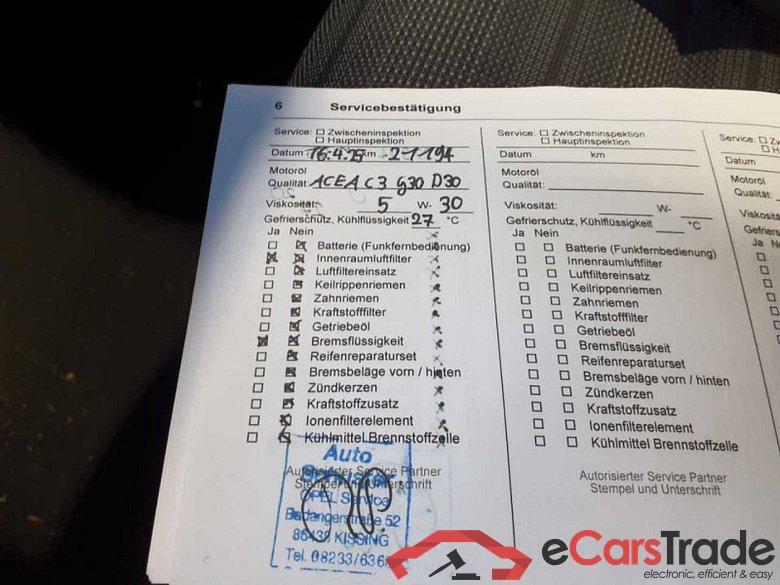 6 Servicebestätigung
Service: Zwischeninspektion
Hauptinspektion
Datum 16.4.25 km 21194
Motoröl
Qualität: ACEA C3 D30
Viskosität: 5 W- 30
Gefrierschutz, Kühlflüssigkeit 27 °C
Ja Nein
Batterie (Funkfernbedienung)
Innenraumluftfilter
Luftfiltereinsatz
Keilrippenriemen
Zahnriemen
Kraftstofffilter
Getriebeöl
Bremsflüssigkeit
Reifenreparaturset
Bremsbeläge vorn / hinten
Zündkerzen
Kraftstoffzusatz
Ionenfilterelement
Kühlmittel Brennstoffzelle
Auto
Autorisierter Service Partner
Stempel und Unterschrift
OPEL Service
Badangerstraße 52
86438 KISSING
Tel. 08233/636
Service: Zwischeninspektion
Hauptinspektion
Datum km
Motoröl
Qualität:
Viskosität: W-
Gefrierschutz, Kühlflüssigkeit °C
Ja Nein
Batterie (Funkfernbedienung)
Innenraumluftfilter
Luftfiltereinsatz
Keilrippenriemen
Zahnriemen
Kraftstofffilter
Getriebeöl
Bremsflüssigkeit
Reifenreparaturset
Bremsbeläge vorn / hinten
Zündkerzen
Kraftstoffzusatz
Ionenfilterelement
Kühlmittel Brennstoffzelle
Autorisierter Service Partner
Stempel und Unterschrift
Service: Zw
H
Datum
Motoröl
Qualität:
Viskositä
Gefriers
Ja N
eCarsTrade
electronic, efficient & easy